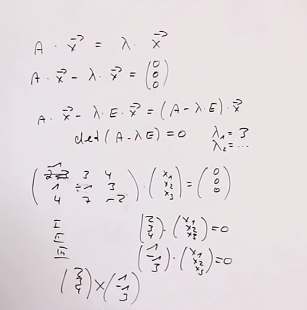 A · x⃗ = λ · x⃗
A · x⃗ − λ · x⃗ = (0 0 0)
A · x⃗ − λ · E · x⃗ = (A − λ · E) · x⃗
det (A − λE) = 0 λ₁ = 3
λ₂ = ...
−1 3 4
1 −1 3 · (x₁ x₂ x₃) = (0 0 0)
4 7 −2
I
II (2 3 4) · (x₁ x₂ x₃) = 0
III (1 −1 3) · (x₁ x₂ x₃) = 0
× (1 −1 3)